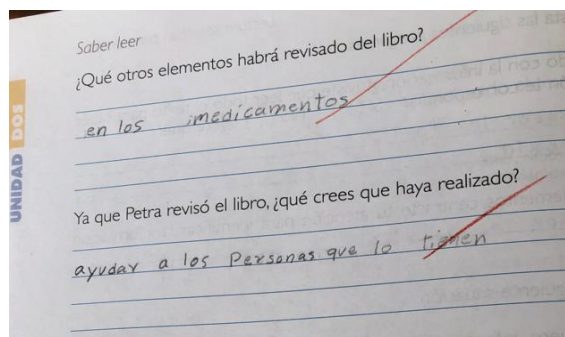 Saber leer
¿Qué otros elementos habrá revisado del libro?
en los medicamentos
Ya que Petra revisó el libro, ¿qué crees que haya realizado?
ayudar a los Personas que lo tienen
UNIDAD DOS